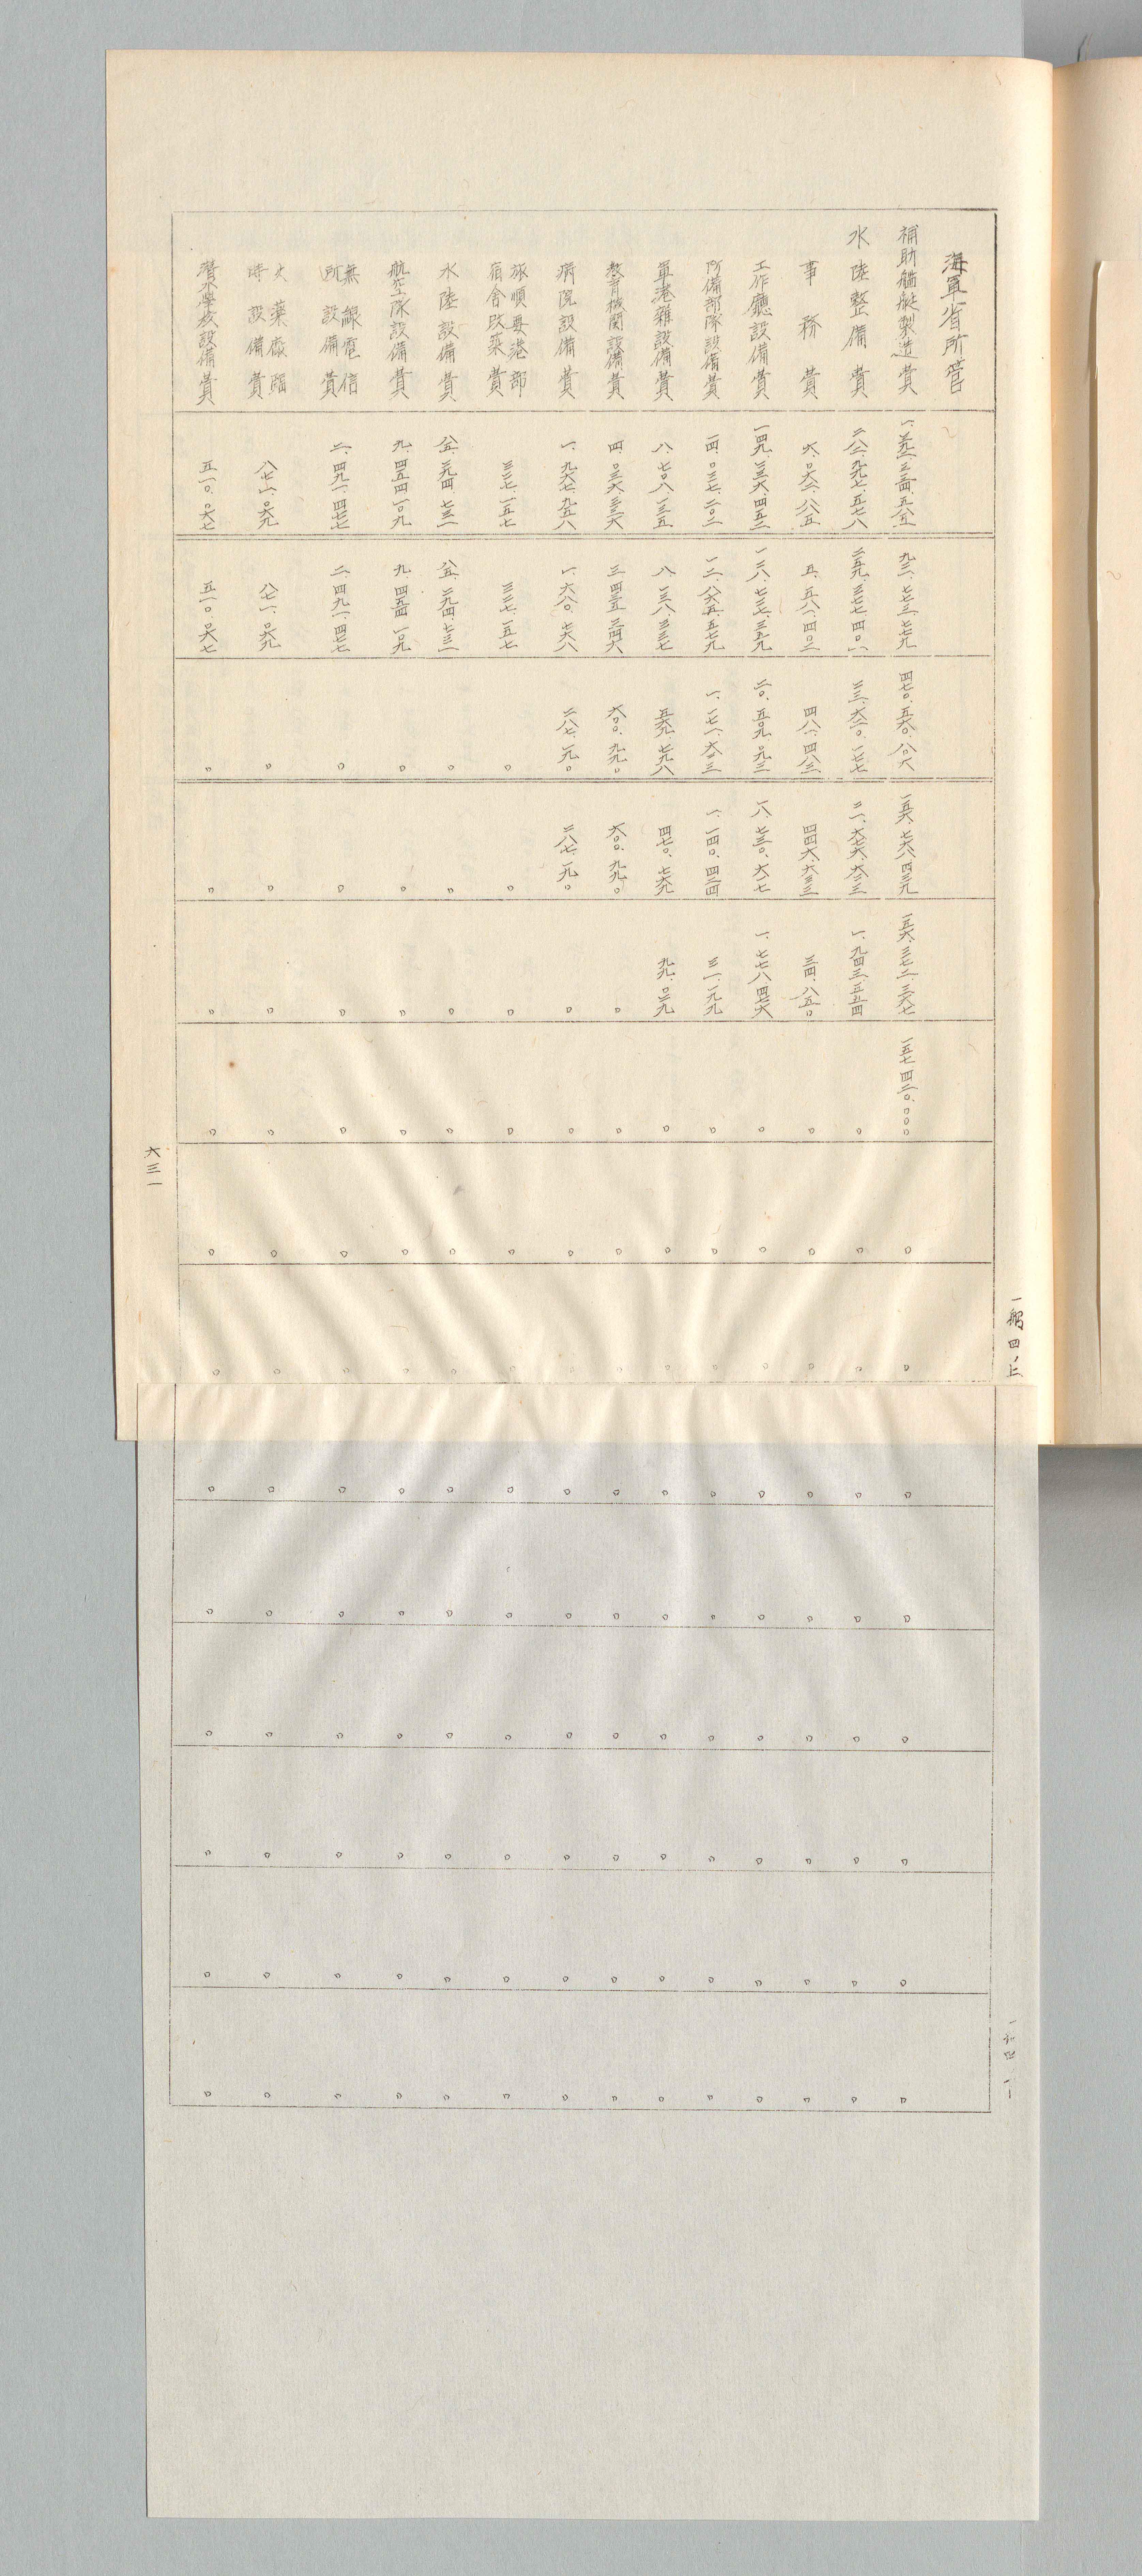 一般四ノ上
海軍省所管
補助艦艇製造費 一、三九二、三三四、五八五 九二一、七七三、七七九 四七〇、五六〇、八〇六 一五六、七六八、四三九 一五六、三七二、三六七 一五七、四二〇、〇〇〇 〇 〇 〇 〇 〇 〇 〇 〇
水陸整備費 二八二、九九七、五七八 二五九、三七七、四〇一 二三、六二〇、一七七 二一、六七六、六二三 一、九四三、五五四 〇 〇 〇 〇 〇 〇 〇 〇 〇
事務費 六、〇六二、八八五 五、五八一、四〇二 四八一、四八三 四四六、六三三 三四、八五〇 〇 〇 〇 〇 〇 〇 〇 〇 〇
工作廳設備費 一四九、二三六、四五二 一二八、七二七、三五九 二〇、五〇九、〇九三 一八、七三〇、六一七 一、七七八、四七六 〇 〇 〇 〇 〇 〇 〇 〇 〇
防備部隊設備費 一四、〇三七、二〇二 一二、八六五、五七九 一、一七一、六二三 一、一四〇、四二四 三一、一九九 〇 〇 〇 〇 〇 〇 〇 〇 〇
軍港雜設備費 八、七〇八、一三五 八、一三八、三三七 五六九、七九八 四七〇、七六九 九九、〇二九 〇 〇 〇 〇 〇 〇 〇 〇 〇
教育機関設備費 四、〇三六、三三六 三、四三五、三四六 六〇〇、九九〇 六〇〇、九九〇 〇 〇 〇 〇 〇 〇 〇 〇 〇 〇
病院設備費 一、九六七、九五八 一、六八〇、七六八 二八七、一九〇 二八七、一九〇 〇 〇 〇 〇 〇 〇 〇 〇 〇 〇
旅順要港部
宿舎改築費 三二七、一五七 三二七、一五七 〇 〇 〇 〇 〇 〇 〇 〇 〇 〇 〇 〇
水陸設備費 八五、二九四、七三一 八五、二九四、七三一 〇 〇 〇 〇 〇 〇 〇 〇 〇 〇 〇 〇
航空隊設備費 九、四五四、一〇九 九、四五四、一〇九 〇 〇 〇 〇 〇 〇 〇 〇 〇 〇 〇 〇
無線電信
所設備費 二、四九一、四七七 二、四九一、四七七 〇 〇 〇 〇 〇 〇 〇 〇 〇 〇 〇 〇
火薬廠臨
時設備費 八七一、〇六九 八七一、〇六九 〇 〇 〇 〇 〇 〇 〇 〇 〇 〇 〇 〇
潜水學校設備費 五一〇、〇六七 五一〇、〇六七 〇 〇 〇 〇 〇 〇 〇 〇 〇 〇 〇 〇
六三一